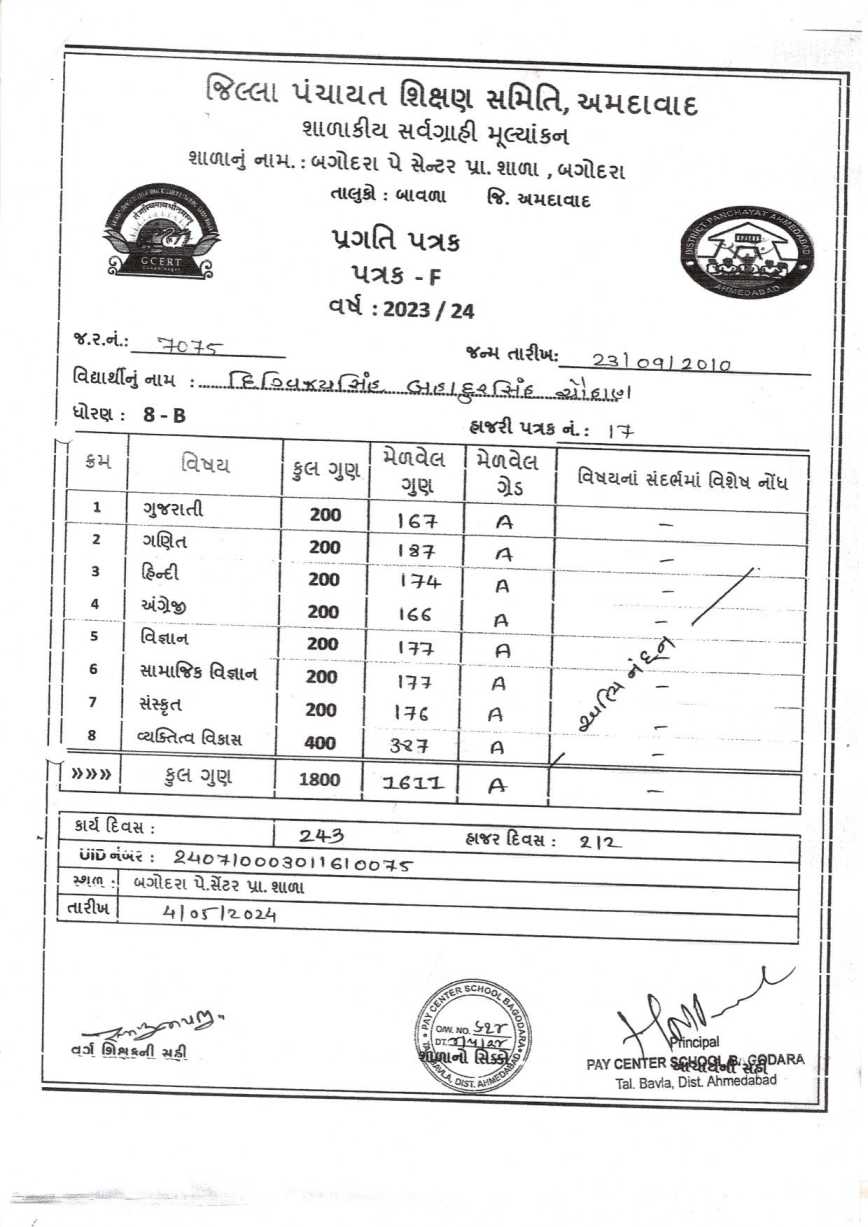 જિલ્લા પંચાયત શિક્ષણ સમિતિ, અમદાવાદ
શાળાકીય સર્વગ્રાહી મૂલ્યાંકન
શાળાનું નામ. : બગોદરા પે સેન્ટર પ્રા. શાળા , બગોદરા
તાલુકો : બાવળા જિ. અમદાવાદ
GCERT
DISTRICT PANCHAYAT AHMEDABAD
AHMEDABAD
પ્રગતિ પત્રક
પત્રક - F
વર્ષ : 2023 / 24
જ.ર.નં.: 7075 જન્મ તારીખ: 23/09/2010
વિદ્યાર્થીનું નામ : દિગ્વિજયસિંહ બહાદુરસિંહ ચૌહાણ
ધોરણ : 8 - B હાજરી પત્રક નં. : 17
ક્રમ વિષય કુલ ગુણ મેળવેલ ગુણ મેળવેલ ગ્રેડ વિષયનાં સંદર્ભમાં વિશેષ નોંધ
1 ગુજરાતી 200 167 A –
2 ગણિત 200 187 A –
3 હિન્દી 200 174 A –
4 અંગ્રેજી 200 166 A –
5 વિજ્ઞાન 200 177 A
6 સામાજિક વિજ્ઞાન 200 177 A –
7 સંસ્કૃત 200 176 A –
8 વ્યક્તિત્વ વિકાસ 400 327 A –
»»» કુલ ગુણ 1800 1611 A –
કાર્ય દિવસ : 243 હાજર દિવસ : 212
UID નંબર : 240710003011610075
સ્થળ : બગોદરા પે.સેંટર પ્રા. શાળા
તારીખ 4/05/2024
વર્ગ શિક્ષકની સહી
PAY CENTER SCHOOL BAGODARA
O/W. NO.
DT.
શાળાનો સિક્કો
TAL. BAVLA, DIST. AHMEDABAD
Principal
PAY CENTER SCHOOL BAGODARA
આચાર્યની સહી
Tal. Bavla, Dist. Ahmedabad